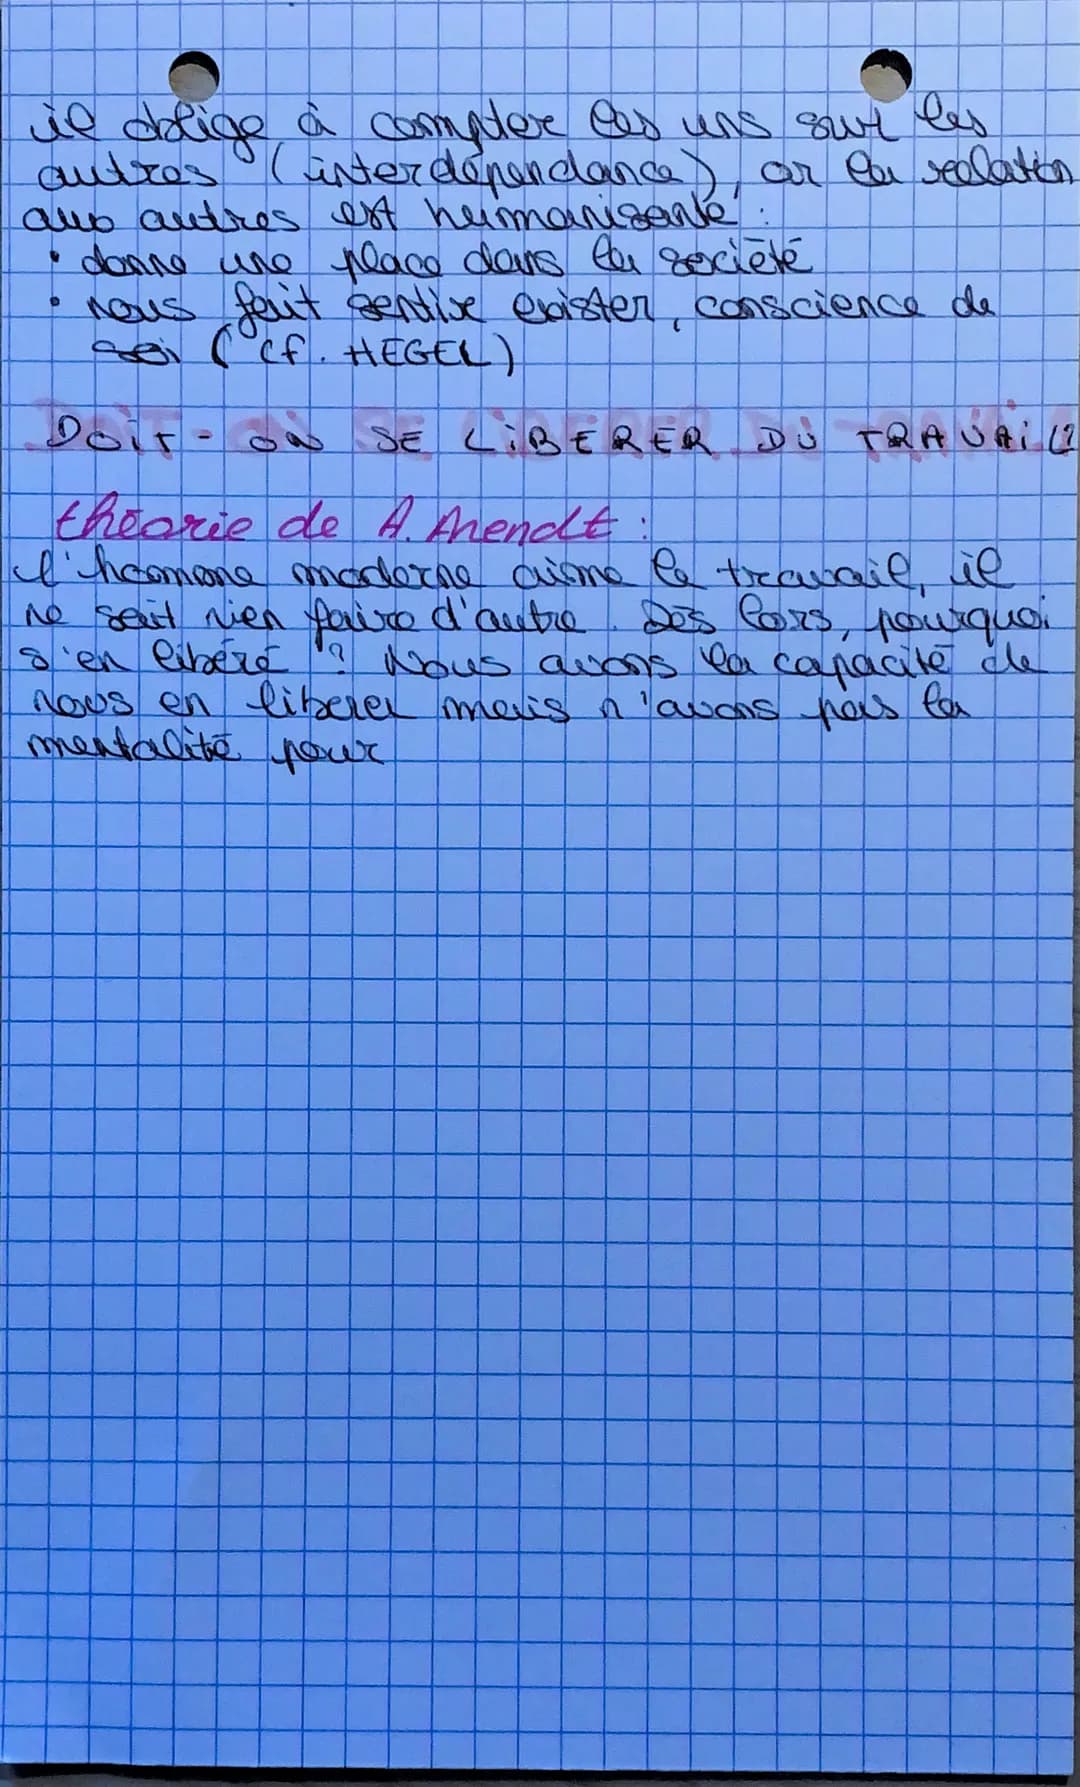 il oblige à compter les uns sur les
autres (interdépendance), or la relation
aux autres est humanisante :
• donne une place dans la société
• nous fait sentir exister, conscience de
soi (cf. HEGEL)
DOIT-ON SE LIBERER DU TRAVAIL?
théorie de A. Arendt :
l'homme moderne aime le travail, il
ne sait rien faire d'autre. Dès lors, pourquoi
s'en libéré ? Nous avons la capacité de
nous en liberer mais n'avons pas la
mentalité pour